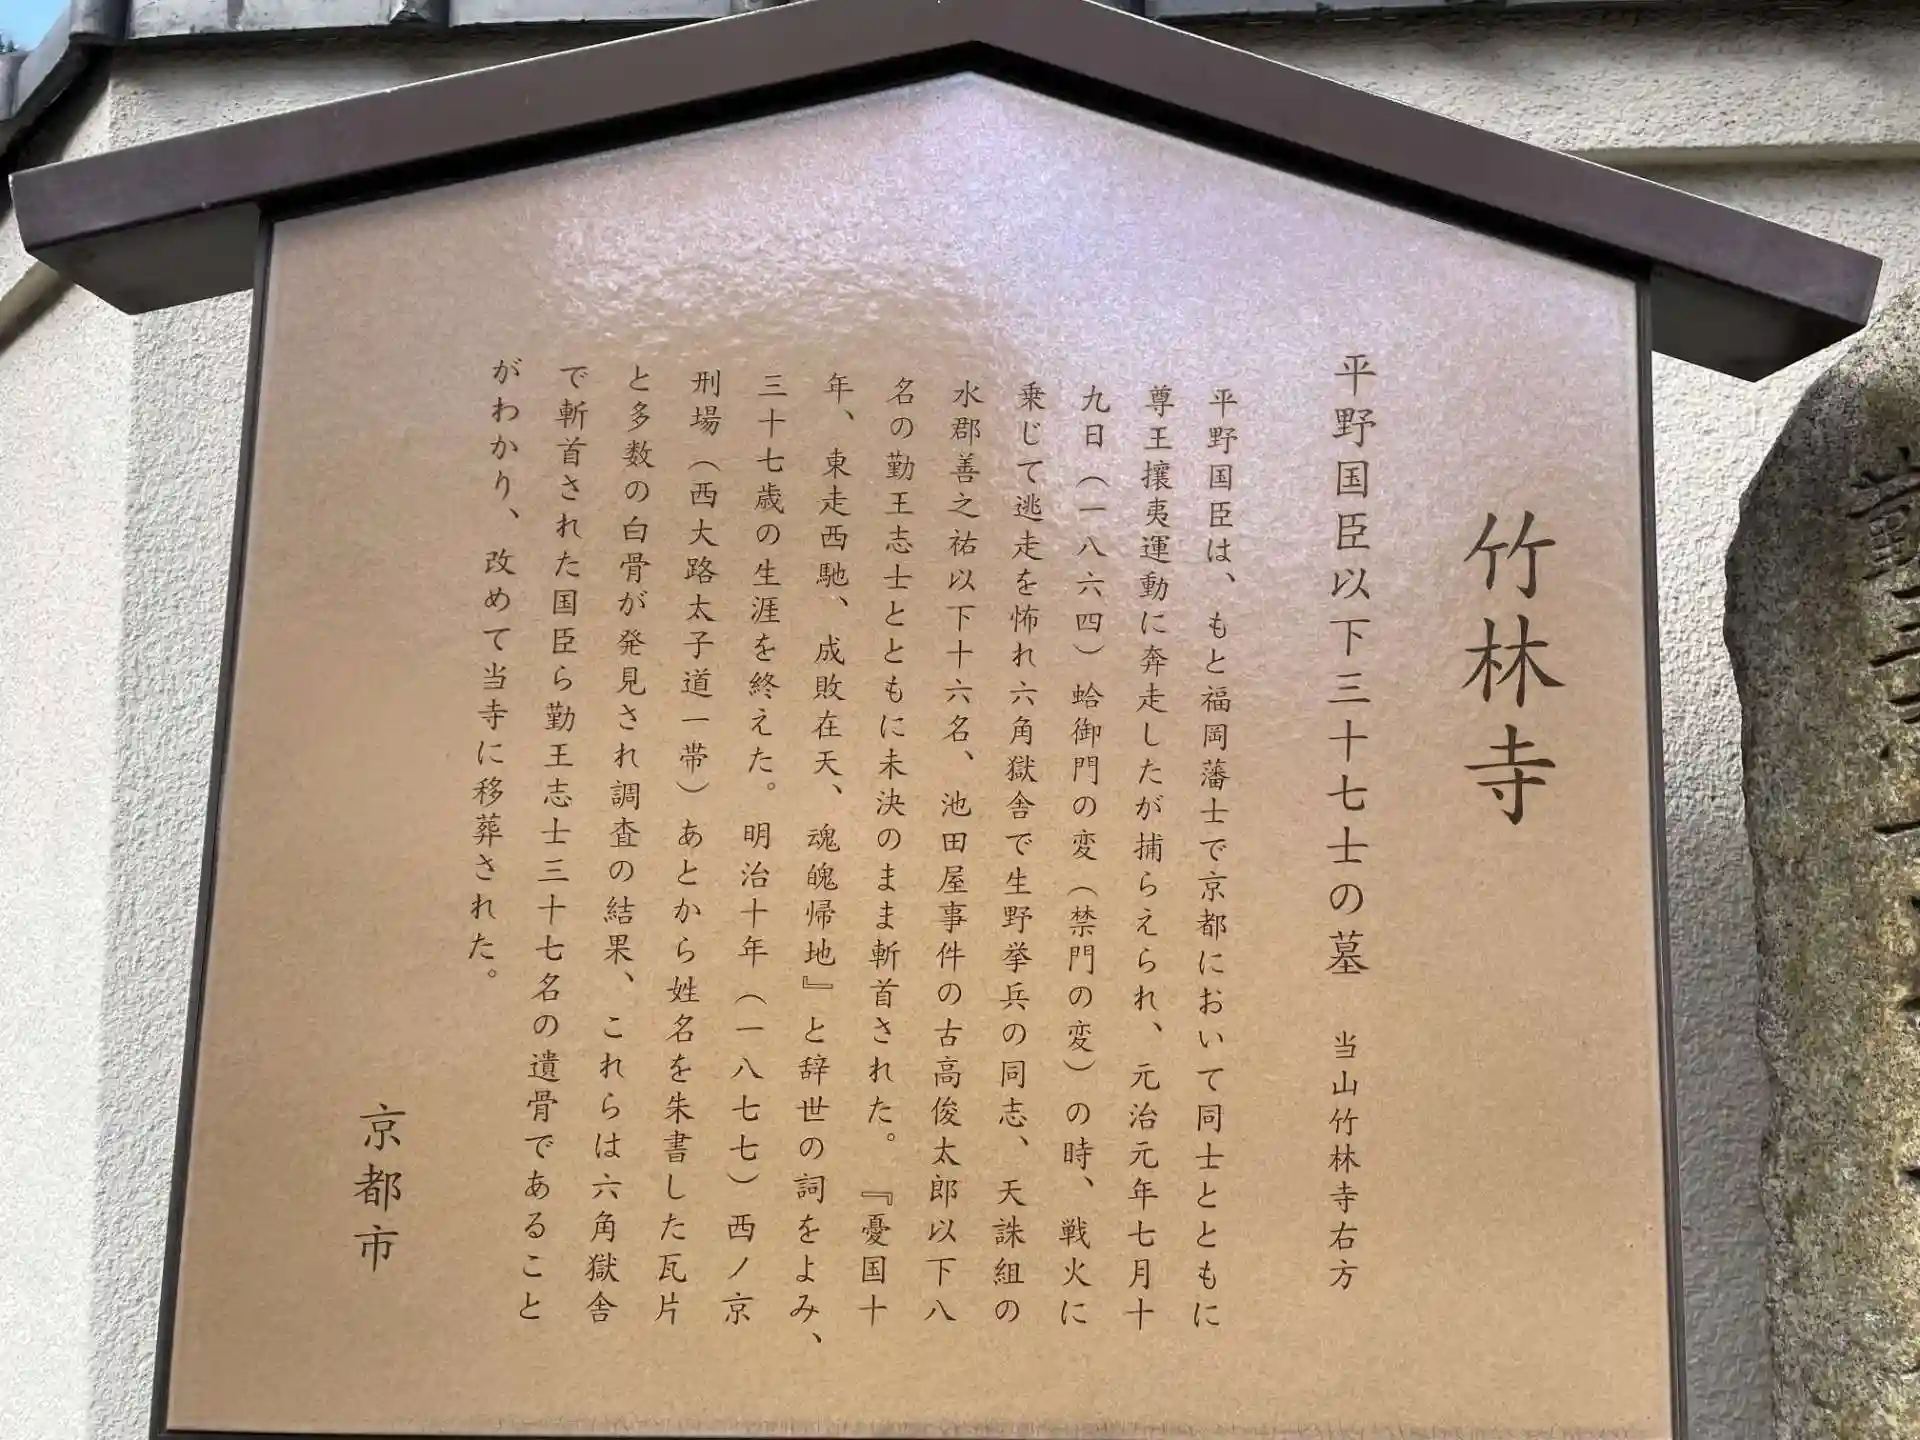 竹林寺
平野国臣以下三十七士の墓　当山竹林寺右方
平野国臣は、もと福岡藩士で京都において同士とともに
尊王攘夷運動に奔走したが捕らえられ、元治元年七月十
九日（一八六四）蛤御門の変（禁門の変）の時、戦火に
乗じて逃走を怖れ六角獄舎で生野挙兵の同志、天誅組の
水郡善之祐以下十六名、池田屋事件の古高俊太郎以下八
名の勤王志士とともに未決のまま斬首された。『憂国十
年、東走西馳、成敗在天、魂魄帰地』と辞世の詞をよみ、
三十七歳の生涯を終えた。明治十年（一八七七）西ノ京
刑場（西大路太子道一帯）あとから姓名を朱書した瓦片
と多数の白骨が発見され調査の結果、これらは六角獄舎
で斬首された国臣ら勤王志士三十七名の遺骨であること
がわかり、改めて当寺に移葬された。
京都市